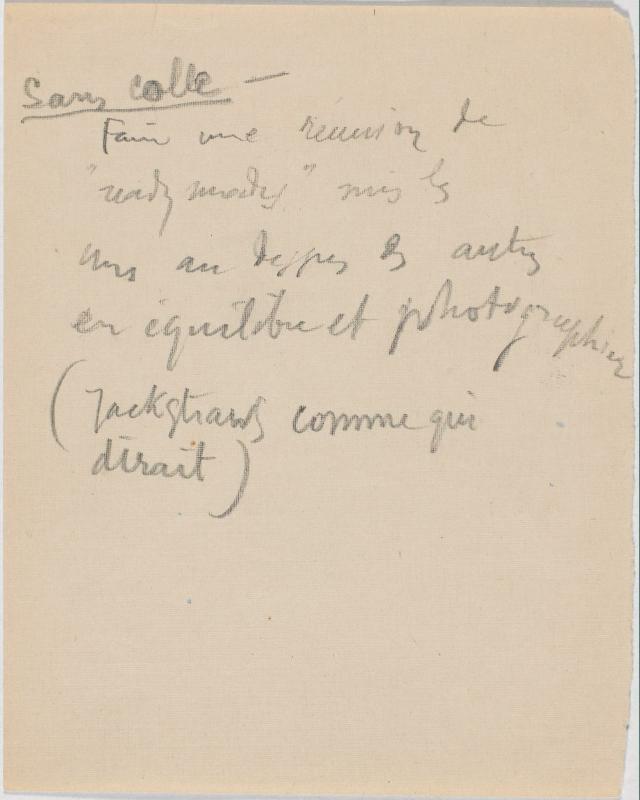 Sans colle —
Faire une réunion de
"readymades" mis les
uns au dessus des autres
en équilibre et photographier
(Jackstraws comme qui
dirait)